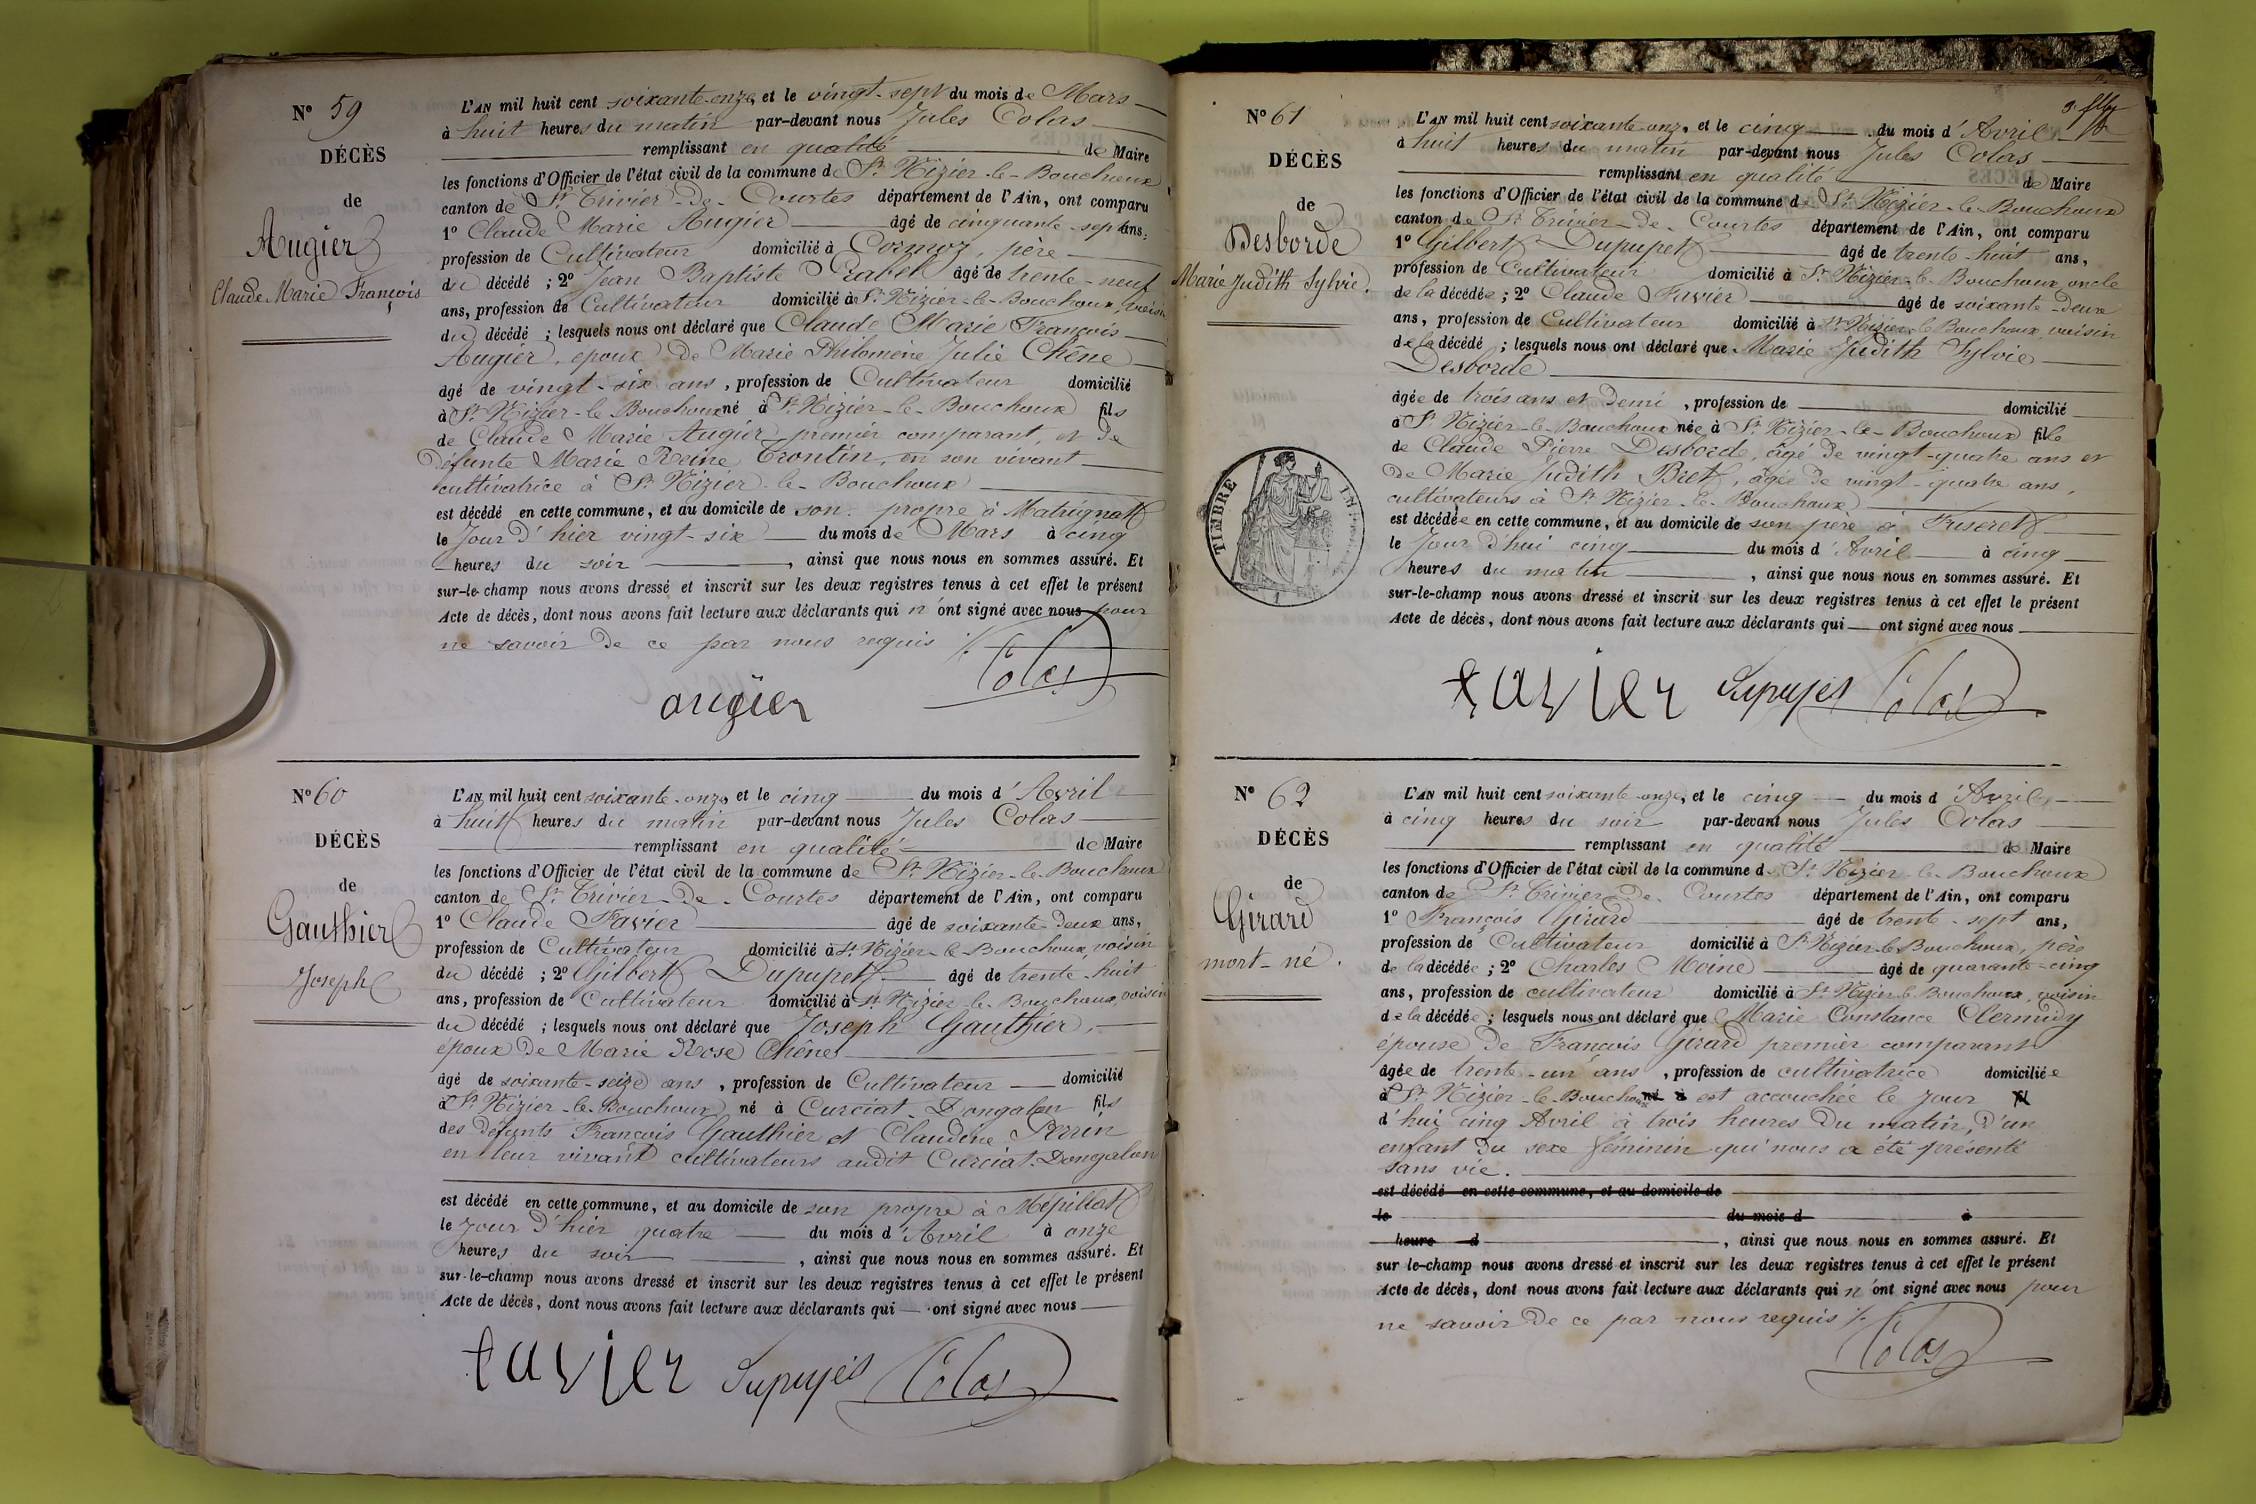 N° 59
DÉCÈS
de
Augier
Claude Marie François
L'AN mil huit cent soixante-onze, et le vingt-sept du mois de Mars
à huit heures du matin par-devant nous Jules Colas
remplissant en qualité de Maire
les fonctions d'Officier de l'état civil de la commune de St Nizier-le-Bouchoux
canton de St Trivier-de-Courtes département de l'Ain, ont comparu
1° Claude Marie Augier âgé de cinquante-sept ans,
profession de Cultivateur domicilié à Cormoz, père
du décédé ; 2° Jean Baptiste Prabel âgé de trente-neuf
ans, profession de Cultivateur domicilié à St Nizier-le-Bouchoux, voisin
du décédé ; lesquels nous ont déclaré que Claude Marie François
Augier, époux de Marie Philomène Julie Chêne
âgé de vingt-six ans, profession de Cultivateur domicilié
à St Nizier-le-Bouchoux né à St Nizier-le-Bouchoux fils
de Claude Marie Augier premier comparant, et de
défunte Marie Reine Trontin, en son vivant
cultivatrice à St Nizier-le-Bouchoux
est décédé en cette commune, et au domicile de son propre à Matrignat
le Jour d'hier vingt-six du mois de Mars à cinq
heures du soir, ainsi que nous nous en sommes assuré. Et
sur-le-champ nous avons dressé et inscrit sur les deux registres tenus à cet effet le présent
Acte de décès, dont nous avons fait lecture aux déclarants qui n'ont signé avec nous pour
ne savoir de ce par nous requis ./.
Colas
augier
N° 60
DÉCÈS
de
Gauthier
Joseph
L'AN mil huit cent soixante-onze, et le cinq du mois d'Avril
à huit heures du matin par-devant nous Jules Colas
remplissant en qualité de Maire
les fonctions d'Officier de l'état civil de la commune de St Nizier-le-Bouchoux
canton de St Trivier-de-Courtes département de l'Ain, ont comparu
1° Claude Favier âgé de soixante-deux ans,
profession de Cultivateur domicilié à St Nizier-le-Bouchoux, voisin
du décédé ; 2° Gilbert Dupupet âgé de trente-huit
ans, profession de Cultivateur domicilié à St Nizier-le-Bouchoux, voisin
du décédé ; lesquels nous ont déclaré que Joseph Gauthier,
époux de Marie Rose Chêne
âgé de soixante-seize ans, profession de Cultivateur domicilié
à St Nizier-le-Bouchoux né à Curciat-Dongalon fils
des défunts François Gauthier et Claudine Perrin
en leur vivant cultivateurs audit Curciat-Dongalon
est décédé en cette commune, et au domicile de son propre à Mépillat
le Jour d'hier quatre du mois d'Avril à onze
heures du soir, ainsi que nous nous en sommes assuré. Et
sur-le-champ nous avons dressé et inscrit sur les deux registres tenus à cet effet le présent
Acte de décès, dont nous avons fait lecture aux déclarants qui ont signé avec nous
favier Dupupet Colas
N° 61
DÉCÈS
de
Desborde
Marie Judith Sylvie.
TIMBRE
L'AN mil huit cent soixante-onze, et le cinq du mois d'Avril
à huit heures du matin par-devant nous Jules Colas
remplissant en qualité de Maire
les fonctions d'Officier de l'état civil de la commune de St Nizier-le-Bouchoux
canton de St Trivier-de-Courtes département de l'Ain, ont comparu
1° Gilbert Dupupet âgé de trente-huit ans,
profession de Cultivateur domicilié à St Nizier-le-Bouchoux, oncle
de la décédée ; 2° Claude Favier âgé de soixante-deux
ans, profession de Cultivateur domicilié à St Nizier-le-Bouchoux, voisin
de la décédé ; lesquels nous ont déclaré que Marie Judith Sylvie
Desborde
âgée de trois ans et Demi, profession de domicilié
à St Nizier-le-Bouchoux née à St Nizier-le-Bouchoux fille
de Claude Pierre Desborde, âgé de vingt-quatre ans et
de Marie Judith Bret, âgée de vingt-quatre ans,
cultivateurs à St Nizier-le-Bouchoux
est décédée en cette commune, et au domicile de son père à Friseret
le Jour d'hui cinq du mois d'Avril à cinq
heures du matin, ainsi que nous nous en sommes assuré. Et
sur-le-champ nous avons dressé et inscrit sur les deux registres tenus à cet effet le présent
Acte de décès, dont nous avons fait lecture aux déclarants qui ont signé avec nous
favier Dupupet Colas
N° 62
DÉCÈS
de
Girard
mort-né.
L'AN mil huit cent soixante-onze, et le cinq du mois d'Avril
à cinq heures du soir par-devant nous Jules Colas
remplissant en qualité de Maire
les fonctions d'Officier de l'état civil de la commune de St Nizier-le-Bouchoux
canton de St Trivier-de-Courtes département de l'Ain, ont comparu
1° François Girard âgé de trente-sept ans,
profession de Cultivateur domicilié à St Nizier-le-Bouchoux, père
de la décédée ; 2° Charles Moine âgé de quarante-cinq
ans, profession de cultivateur domicilié à St Nizier-le-Bouchoux, voisin
de la décédée ; lesquels nous ont déclaré que Marie Constance Clermidy
épouse de François Girard premier comparant
âgée de trente-un ans, profession de cultivatrice domiciliée
à St Nizier-le-Bouchoux est accouchée le jour
d'hui cinq Avril à trois heures du matin, d'un
enfant du sexe féminin qui nous a été présenté
sans vie.
est décédé en cette commune, et au domicile de
le du mois d à
heure d, ainsi que nous nous en sommes assuré. Et
sur le-champ nous avons dressé et inscrit sur les deux registres tenus à cet effet le présent
Acte de décès, dont nous avons fait lecture aux déclarants qui n'ont signé avec nous pour
ne savoir de ce par nous requis ./.
Colas